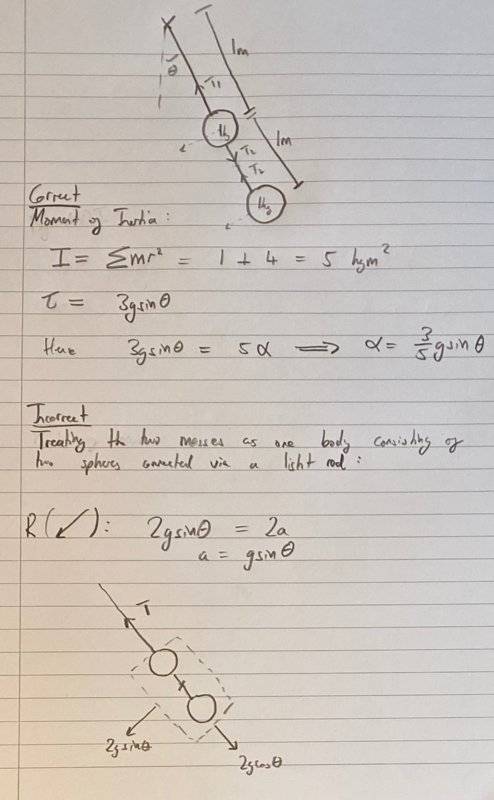 1m
θ
T₁
1kg
1m
T₂
T₂
1kg
Correct
Moment of Inertia:
I = ∑mr² = 1 + 4 = 5 kgm²
τ = 3gsinθ
Hence 3gsinθ = 5α ⟹ α = 3/5 gsinθ
Incorrect
Treating the two masses as one body consisting of
two spheres connected via a light rod:
R(↙): 2gsinθ = 2a
a = gsinθ
T
2gsinθ
2gcosθ